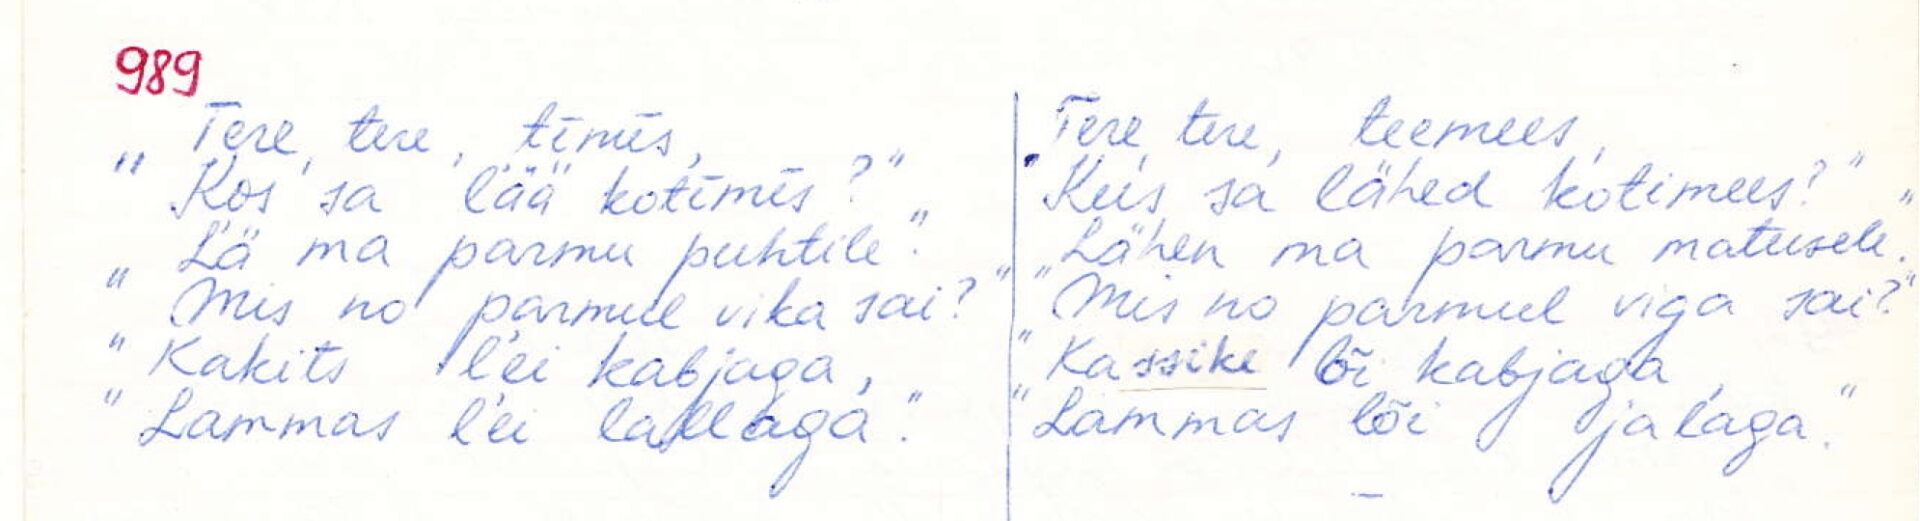 989
Tere, tere, tīmīs,
"Kos sa lää kotīmīs?"
"Lä ma parmu puhtile."
"Mis no parmul vika sai?"
"Kakits l'ei kabjaga,
"Lammas l'ei lallaga."
Tere, tere, teemees,
"Kus sa lähed kotimees?"
"Lähen ma parmu matusele."
"Mis no parmul viga sai?"
"Kassike lõi kabjaga,
"Lammas lõi jalaga."